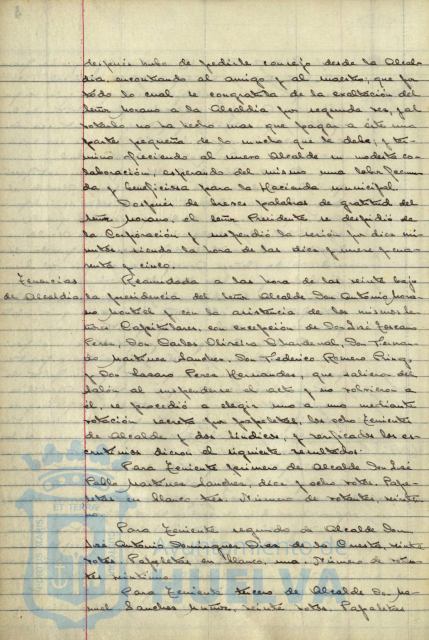 después hubo de pedirle consejo desde la Alcal-
día, encontrando al amigo y al maestro; que por
todo lo cual se congratula de la exaltación del
Señor Morano a la Alcaldía por segunda vez, y al
votarlo no ha hecho mas que pagar a éste una
parte pequeña de lo mucho que le debe; y ter-
minó ofreciendo al nuevo Alcalde su modesta co-
laboración, esperando del mismo una labor fecun-
da y beneficiosa para la Hacienda municipal.
Después de breves palabras de gratitud del
Señor Morano, el Señor Presidente se despidió de
la Corporación y suspendió la sesión por diez mi-
nutos, siendo la hora de las diez y nueve y cua-
renta y cinco.
Tenencias de Alcaldía
Reanudada a las hora de las veinte bajo
la presidencia del Señor Alcalde Don Antonio Mora-
no Montiel y con la asistencia de los mismos Se-
ñores Capitulares, con excepción de Don José
Perez, Don Carlos Oliveira Don Fernan-
do Martinez Sanchez, Don Federico Romero
y Don Lazaro Perez Hernandez, que salieron del
salón al suspenderse el acto y no volvieron a
él, se procedió a elegir uno a uno mediante
votación secreta por papeletas, los ocho Tenientes
de Alcalde y dos Síndicos, y verificados los es-
crutinios dieron el siguiente resultado:
Para Teniente primero de Alcalde Don José
Pablo Martinez Sanchez, diez y ocho votos. Pape-
letas en blanco tres. Número de votantes, veintiu-
no.
Para Teniente segundo de Alcalde Don
José Antonio Dominguez Diaz de la Cuesta, veinte
votos. Papeletas en blanco, una. Número de votan-
tes veintiuno.
Para Teniente tercero de Alcalde Don Ma-
nuel Sanchez Muñoz, veinte votos. Papeletas
Ayuntamiento de
HUELVA